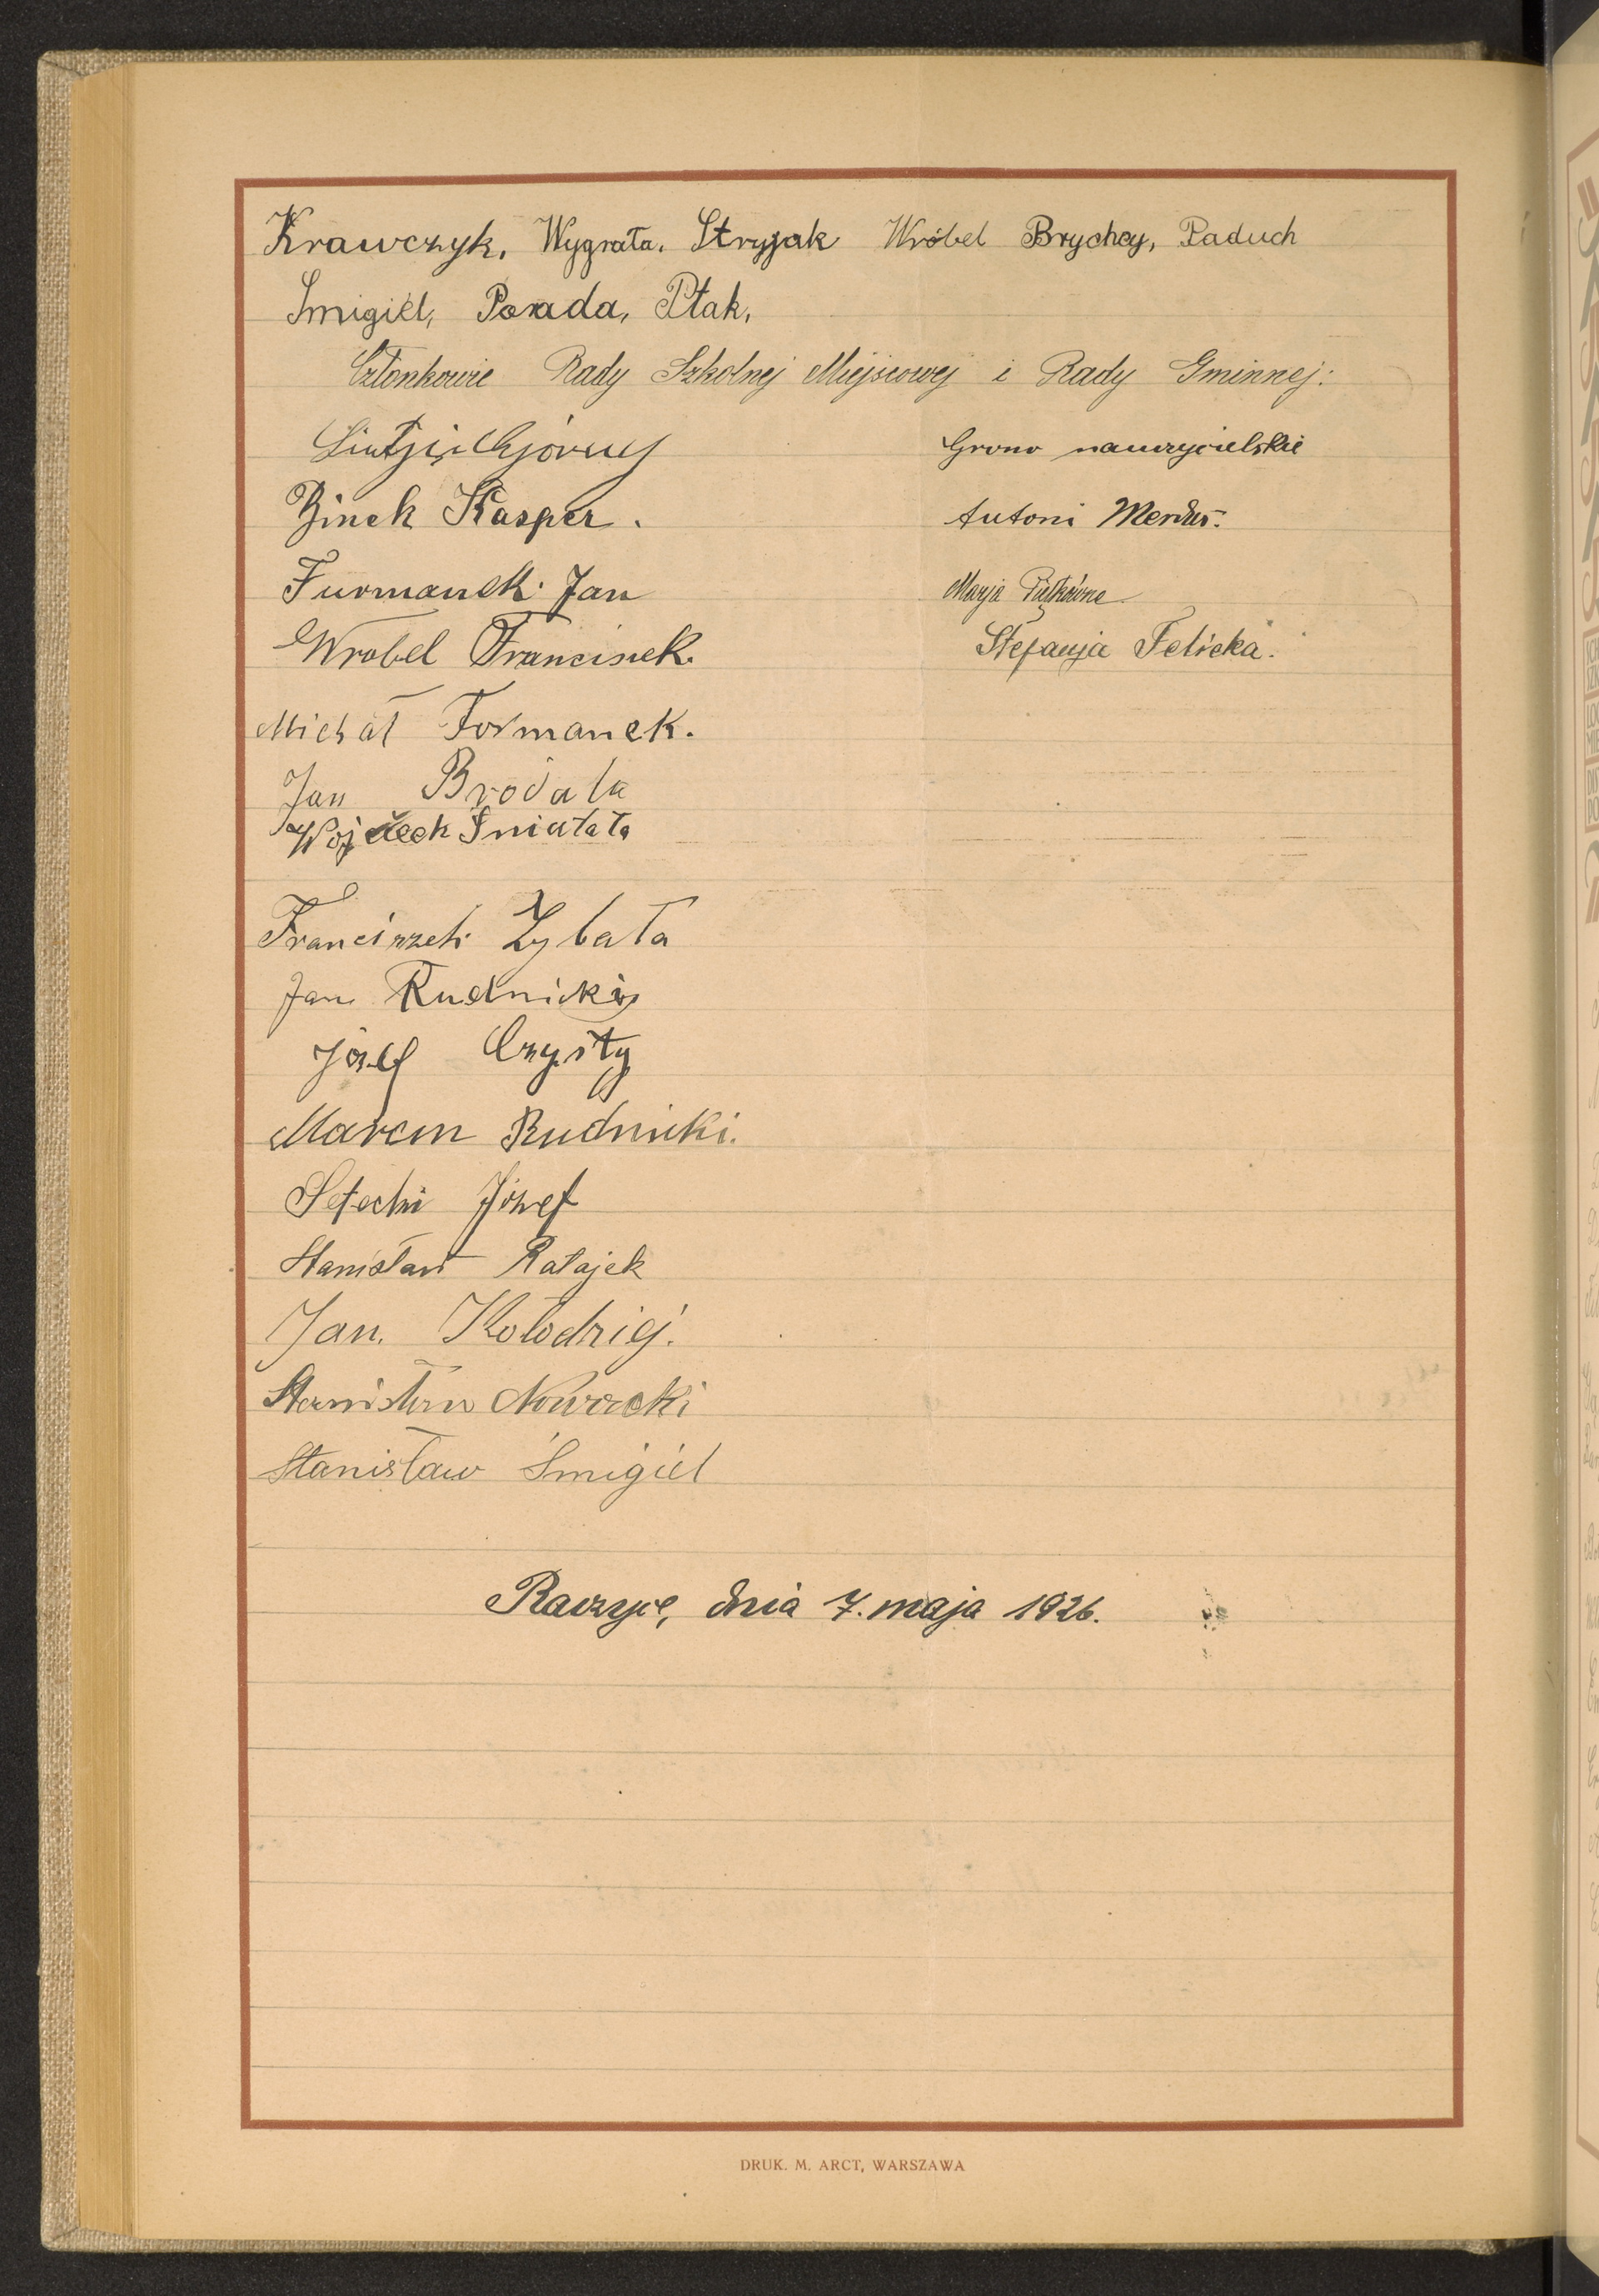 Krawczyk, Wygrała, Stryjak Wróbel Brychcy, Paduch
Śmigiel, Porada, Ptak,
Członkowie Rady Szkolnej Miejscowej i Rady Gminnej:
Górny
Zinek Kasper.
Furmanek Jan
Wrobel Franciszek.
Michał Formanek.
Jan Brodala
Wojciech Śniatała
Franciszek Żybała
Jan Rudnicki
Józef Czysty
Marcin Rudnicki.
Józef
Stanisław Ratajek
Jan. Kołodziej.
Stanisław Nowacki
Stanisław Śmigiel
Grono nauczycielskie
Antoni
Marja
Stefanja Felicka.
Raczyce, dnia 7. maja 1926.
DRUK. M. ARCT, WARSZAWA